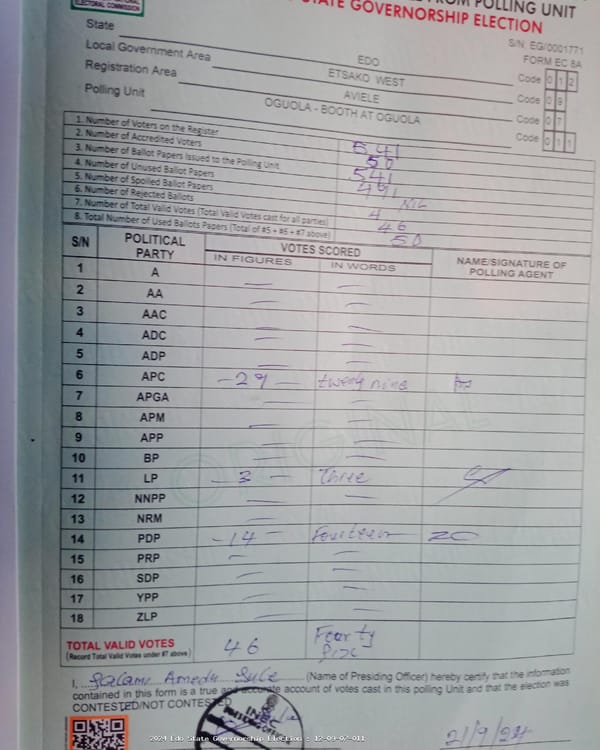 ELECTORAL COMMISSION
FROM POLLING UNIT
STATE GOVERNORSHIP ELECTION
S/N: EG/0001771
FORM EC 8A
State EDO Code 0 1 2
Local Government Area ETSAKO WEST Code 0 9
Registration Area AVIELE Code 0 7
Polling Unit OGUOLA - BOOTH AT OGUOLA Code 0 1 1
1. Number of Voters on the Register 541
2. Number of Accredited Voters 50
3. Number of Ballot Papers Issued to the Polling Unit 541
4. Number of Unused Ballot Papers 491
5. Number of Spoiled Ballot Papers NIL
6. Number of Rejected Ballots 4
7. Number of Total Valid Votes (Total Valid Votes cast for all parties) 46
8. Total Number of Used Ballots Papers (Total of #5 + #6 + #7 above) 50
S/N POLITICAL PARTY VOTES SCORED NAME/SIGNATURE OF POLLING AGENT
IN FIGURES IN WORDS
1 A
2 AA
3 AAC
4 ADC
5 ADP
6 APC - 29 - twenty nine
7 APGA
8 APM
9 APP
10 BP
11 LP - 3 - Three
12 NNPP
13 NRM
14 PDP - 14 - Fourteen
15 PRP
16 SDP
17 YPP
18 ZLP
ORIGINAL
TOTAL VALID VOTES 46 Fourty
(Record Total Valid Votes under #7 above) six
I, Salami Amedu Sule (Name of Presiding Officer) hereby certify that the information
contained in this form is a true and accurate account of votes cast in this polling Unit and that the election was
CONTESTED/NOT CONTESTED
INEC
21/9/24
2024 Edo State Governorship Election : 12-09-07-011